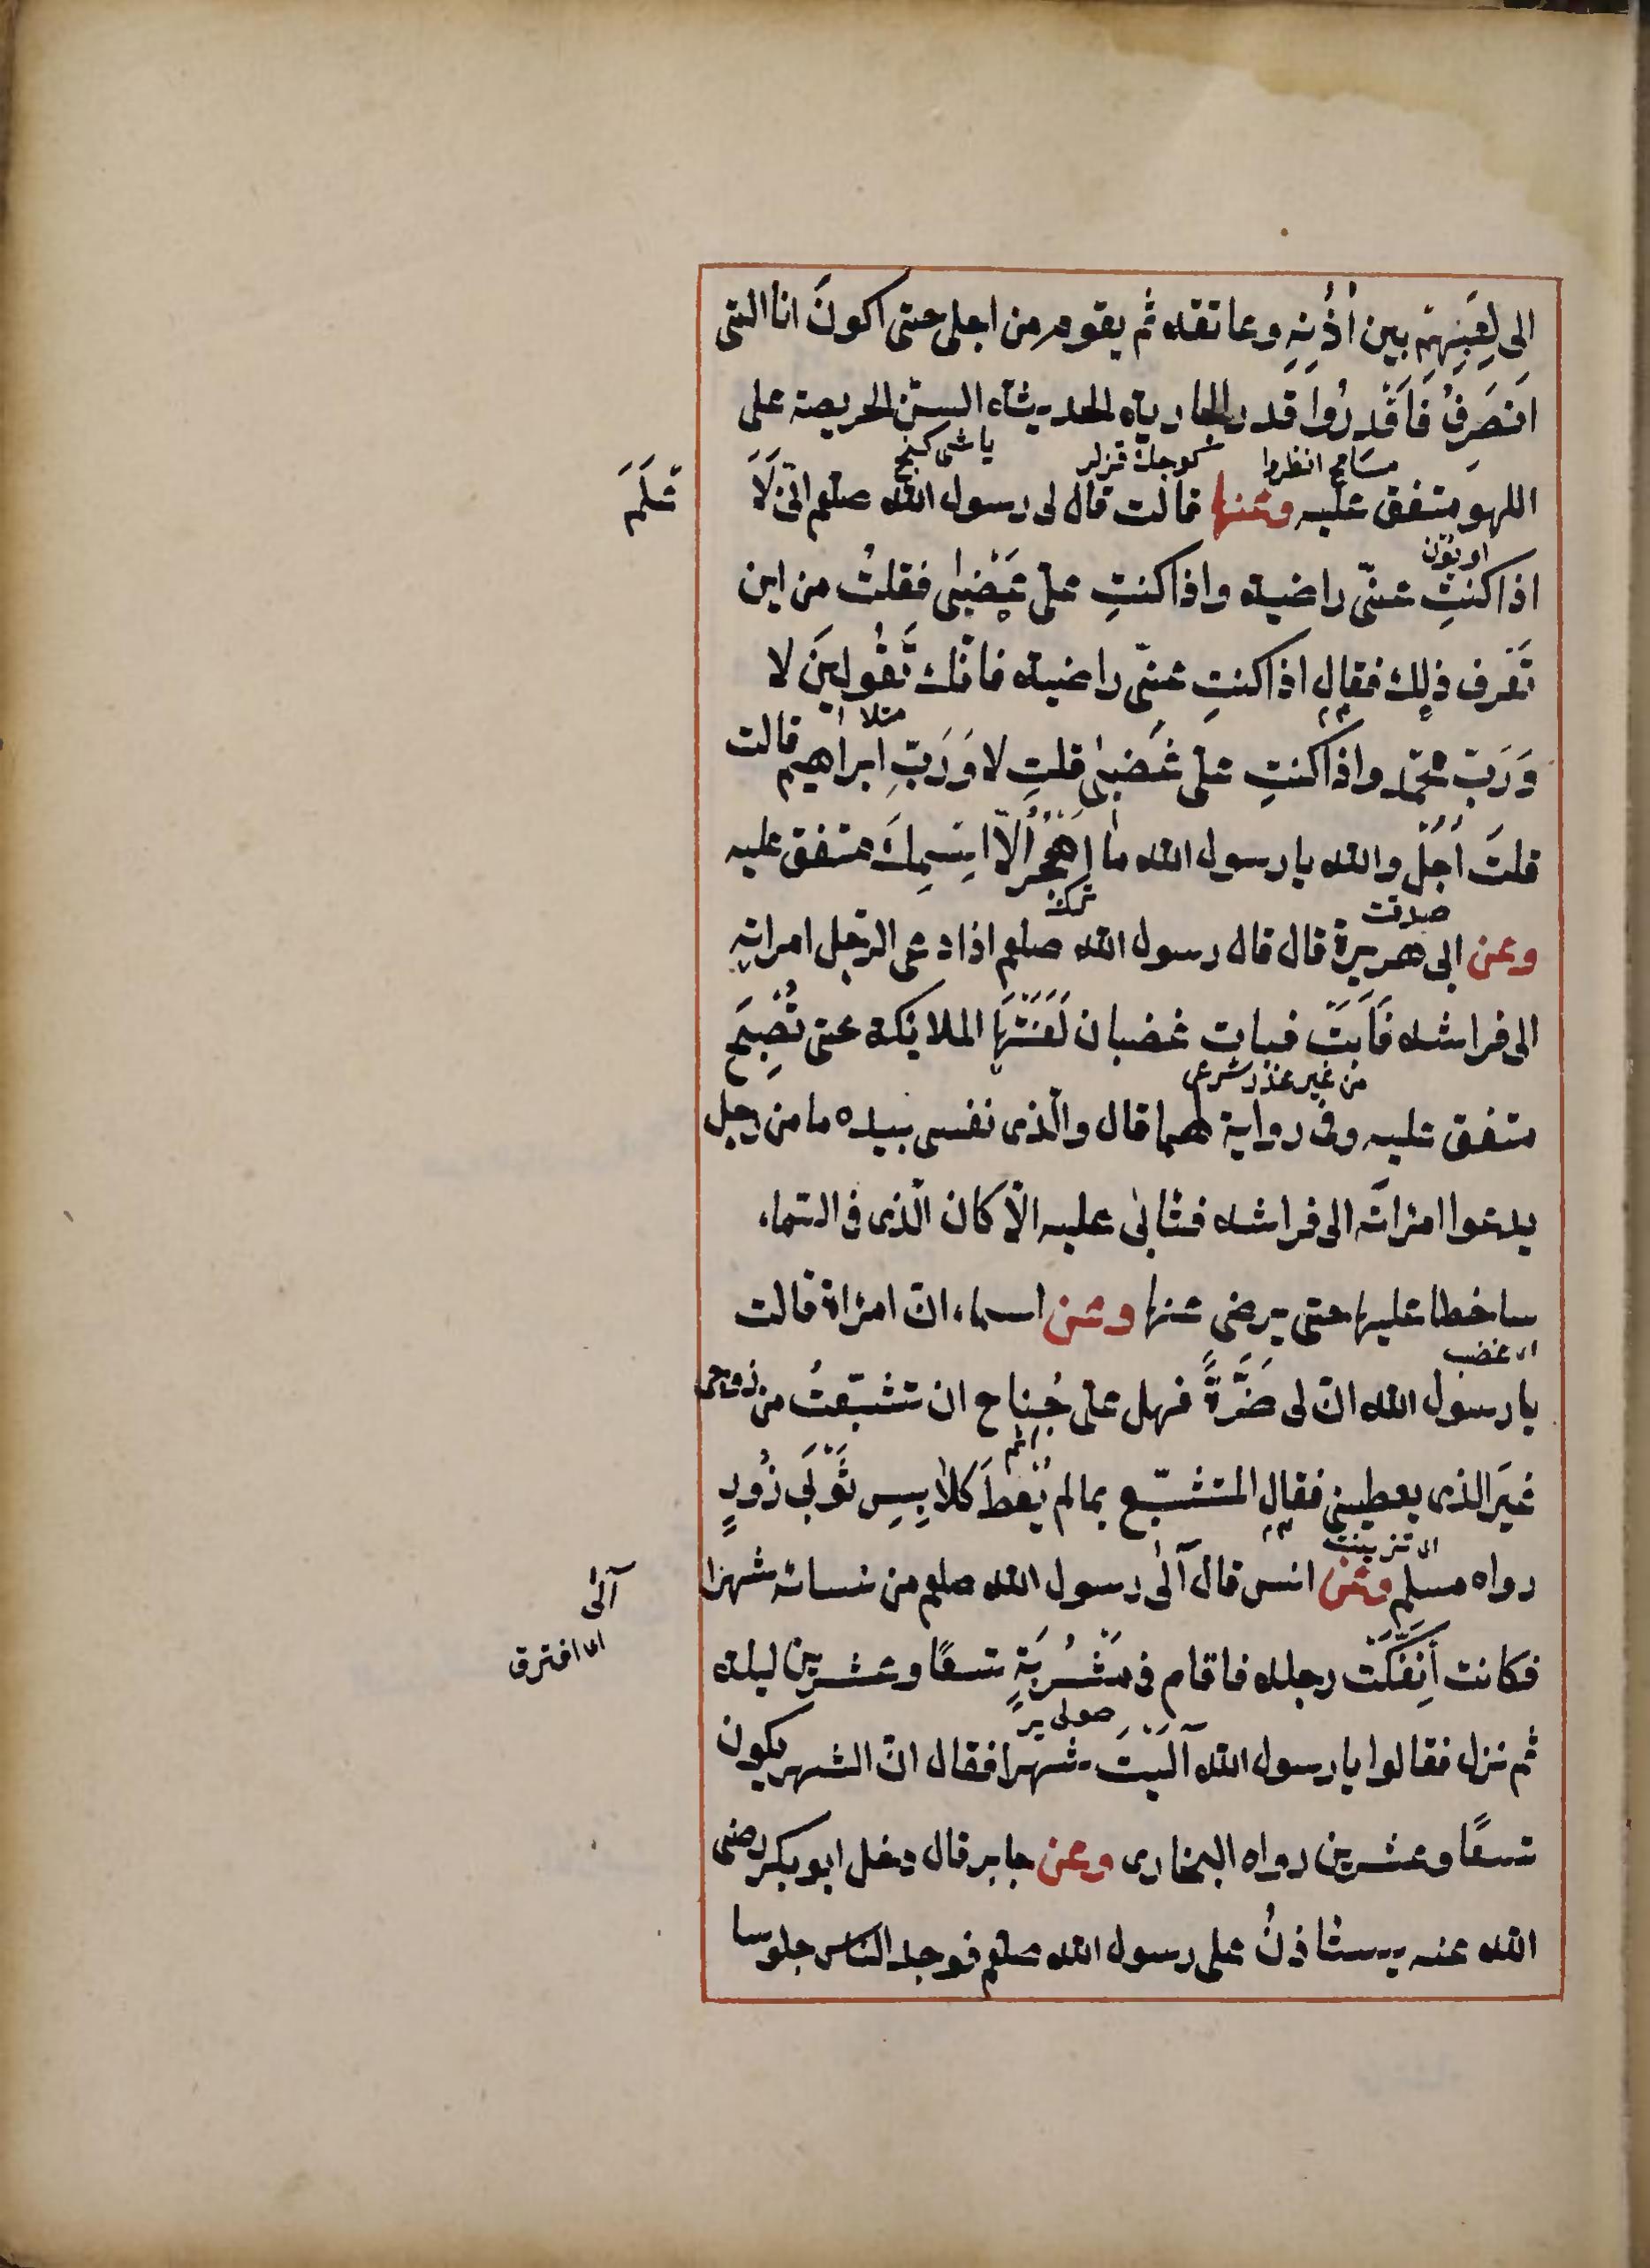 الى لَعِبِهِمْ بين اُذُنِهِ وعاتقه ثم يقوم من اجلى حتى اكونَ انا التى
انصَرِفُ فَاقْدِرُوا قدر الجارية الحديثة السنّ الحريصة على
مسامح انظروا كوجك قزلر ياشى كنج
اللهو متفق عليه وعنها قالت قال لى رسول الله صلعم انّى لَا
عْلَمُ
اويون
اذا كنتِ عنّى راضية واذا كنتِ علىّ غَضْبى فقلتُ من اين
تَعْرف ذلِك فقال اذا كنتِ عنّى راضية فانّك تَقُولينَ لا
مثلا
وَرَبّ محمّد واذا كنتِ علىّ غَضْبى قلتِ لا وَرَبِّ ابراهيم قالت
قلتَ اَجَلْ والله يا رسول الله ما اَهْجُرُ اِلّا اسْمِكَ متفق عليه
صدقت ترك
وعن ابى هريرة قال قال رسول الله صلعم اذا دعى الرّجل امراته
الى فراشه فَاَبَتّ فبات غضبان لَعَنَتْهَا الملائكة حتى تُصْبِحَ
من غير عذر شرعى
متفق عليه وفى رواية لهما قال والّذى نفسى بيده ما من رجل
يدعوا امرْاَته الى فراشه فتْابىٰ عليه الّا كان الّذى فى السّماء
ساخطا عليها حتى يرضى عنها وعن اسماء انّ امرْاة قالت
اى غضب
يا رسول الله انّ لى ضَرَّةً فهل علىّ جُناح ان تشبّعتُ من زوجى
اثم
غيَر الذى يعطينى فقال المتشبّع بما لم يُعْطَ كلابِسِ ثَوْبَى زُورٍ
اى تزينت
رواه مسلم وعن انس قال آلٰى رسول الله صلعم من نسائه شهرًا
آلى
اى افترق
فكانت اَنِفَكَّتْ رجله فاقام فى مَشْرُبَةٍ تسعًا وعشرين ليلة
صولى ير
ثم نزل فقالوا يا رسول الله آلَيْتَ شهرًا فقال انّ الشهر يكون
تسعًا وعشرين رواه البخارى وعن جابر قال دخل ابو بكر رضى
الله عنه يستْاذنُ على رسول الله صلعم فوجد الناس جلوسا